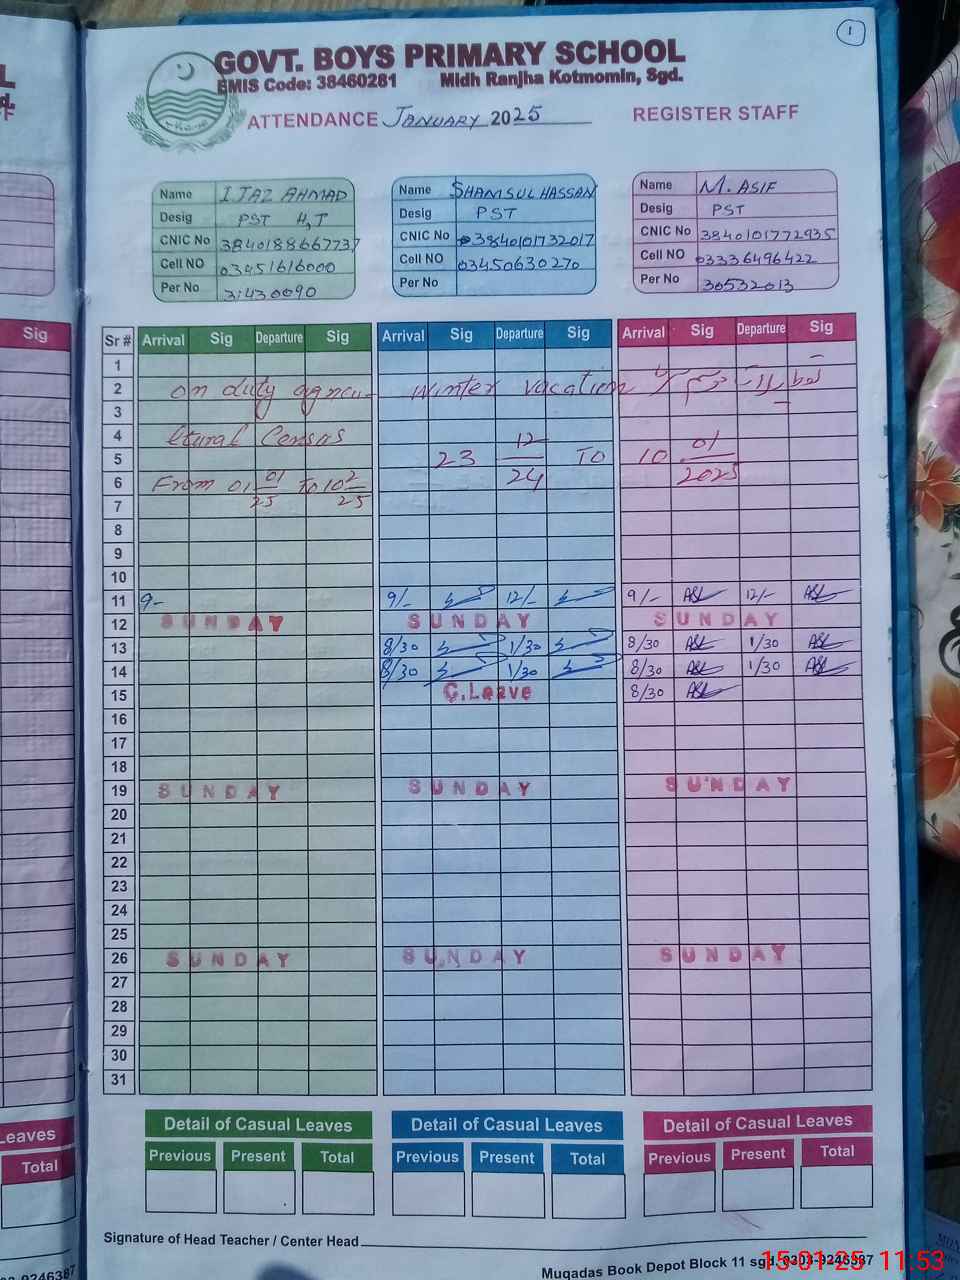 1
GOVT. BOYS PRIMARY SCHOOL
EMIS Code: 38460281 Midh Ranjha Kotmomin, Sgd.
ATTENDANCE JANUARY 2025 REGISTER STAFF
Name IJAZ AHMAD
Desig PST H,T
CNIC No 3840188667737
Cell NO 03451616000
Per No 31430090
Name SHAMSUL HASSAN
Desig PST
CNIC No 3840101732017
Cell NO 03450630270
Per No
Name M. ASIF
Desig PST
CNIC No 3840101772935
Cell NO 03336496422
Per No 30532013
Sig
Sr # Arrival Sig Departure Sig Arrival Sig Departure Sig Arrival Sig Departure Sig
1
2 on duty agricu- winter vacation
3
4 ltural Census
5 23 12/24 TO 10 01/2025
6 From 01 01/25 To 10 2/25
7
8
9
10
11 9- 9/- 12/- 9/- 12/-
12 SUNDAY SUNDAY SUNDAY
13 8/30 1/30 8/30 1/30
14 8/30 1/30 8/30 1/30
15 C.Leave 8/30
16
17
18
19 SUNDAY SUNDAY SUNDAY
20
21
22
23
24
25
26 SUNDAY SUNDAY SUNDAY
27
28
29
30
31
Leaves
Total
Detail of Casual Leaves Detail of Casual Leaves Detail of Casual Leaves
Previous Present Total Previous Present Total Previous Present Total
Signature of Head Teacher / Center Head
Muqadas Book Depot Block 11 sgd. 0303-9246387
15-01-25 11:53